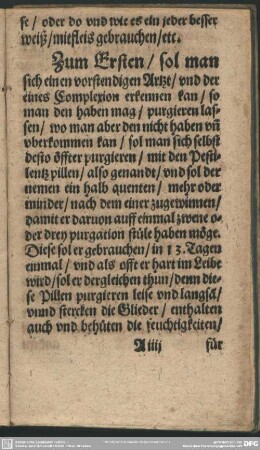 se / oder do vnd wie es ein jeder besser
weiß / mitfleis gebrauchen / ett.
Zum Ersten / sol man
sich einen vorstendigen Artzt / vnd der
eines Complexion erkennen kan / so
man den haben mag / purgieren las-
sen / wo man aber den nicht haben vñ
vberkommen kan / sol man sich selbst
desto öffter purgieren / mit den Pesti-
lentz pillen / also genandt / vnd sol der
nemen ein halb quenten / mehr oder
minder / nach dem einer zugewinnen /
damit er daruon auff einmal zwene o-
der drey purgation stüle haben möge.
Diese sol er gebrauchen / in 13. Tagen
einmal / vnd als offt er hart im Leibe
wird / sol er dergleichen thun / denn die-
se Pillen purgieren leise vnd langsā /
vnnd stercken die Glieder / enthalten
auch vnd behüten die feuchtigkeiten /
A iiij für